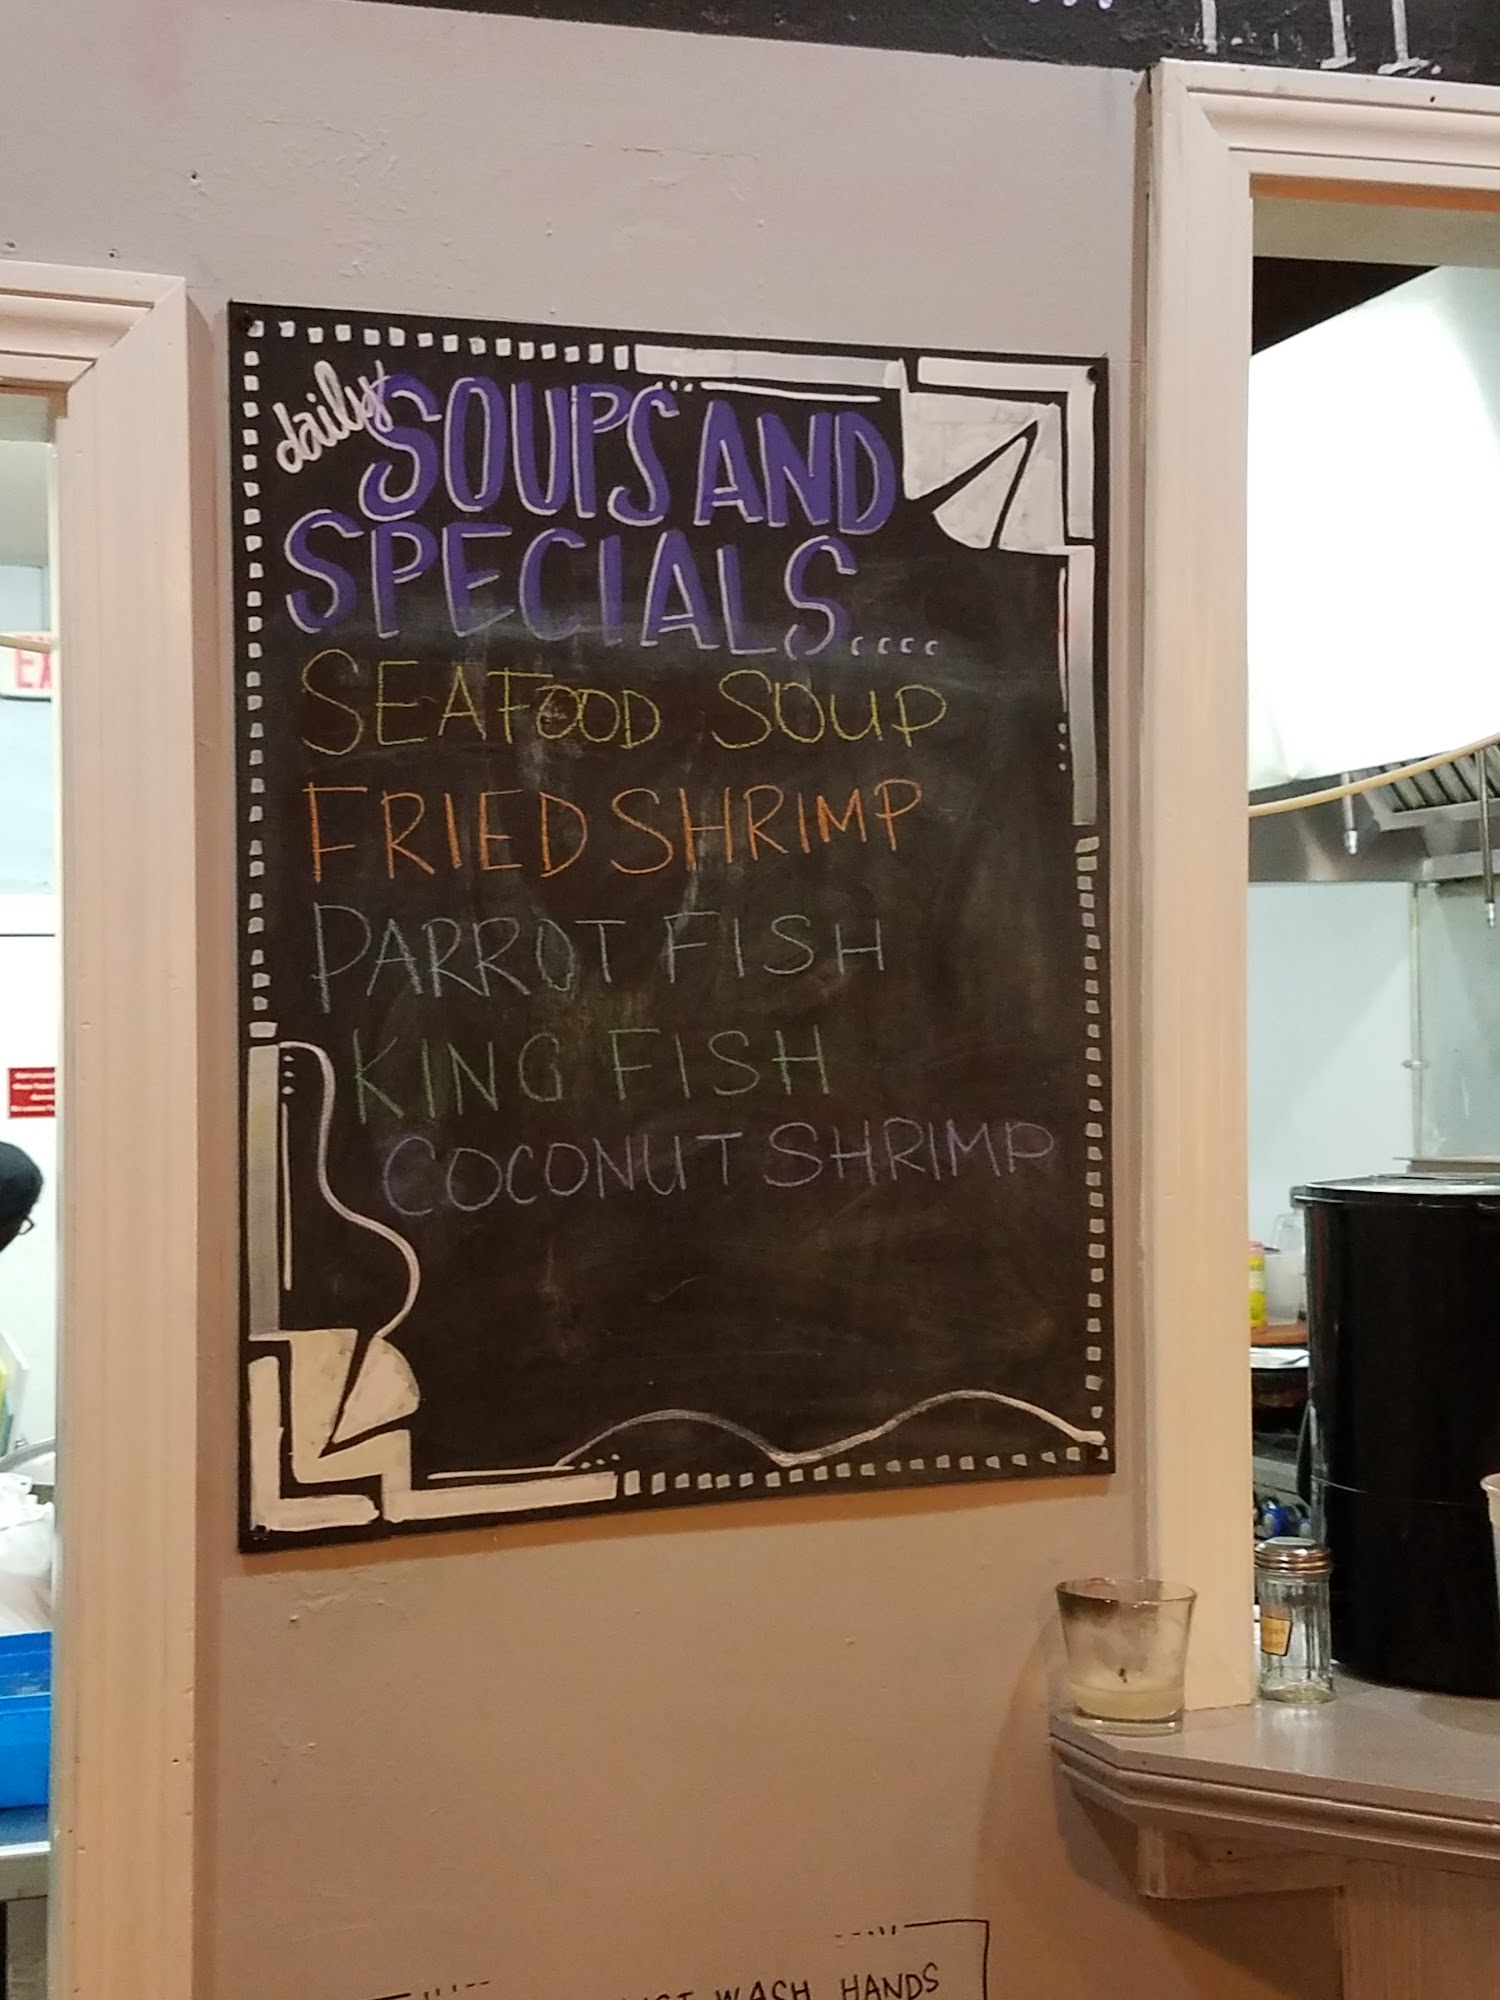 daily SOUPS AND
SPECIALS....
SEAFOOD SOUP
FRIED SHRIMP
PARROT FISH
KING FISH
COCONUT SHRIMP
WASH HANDS